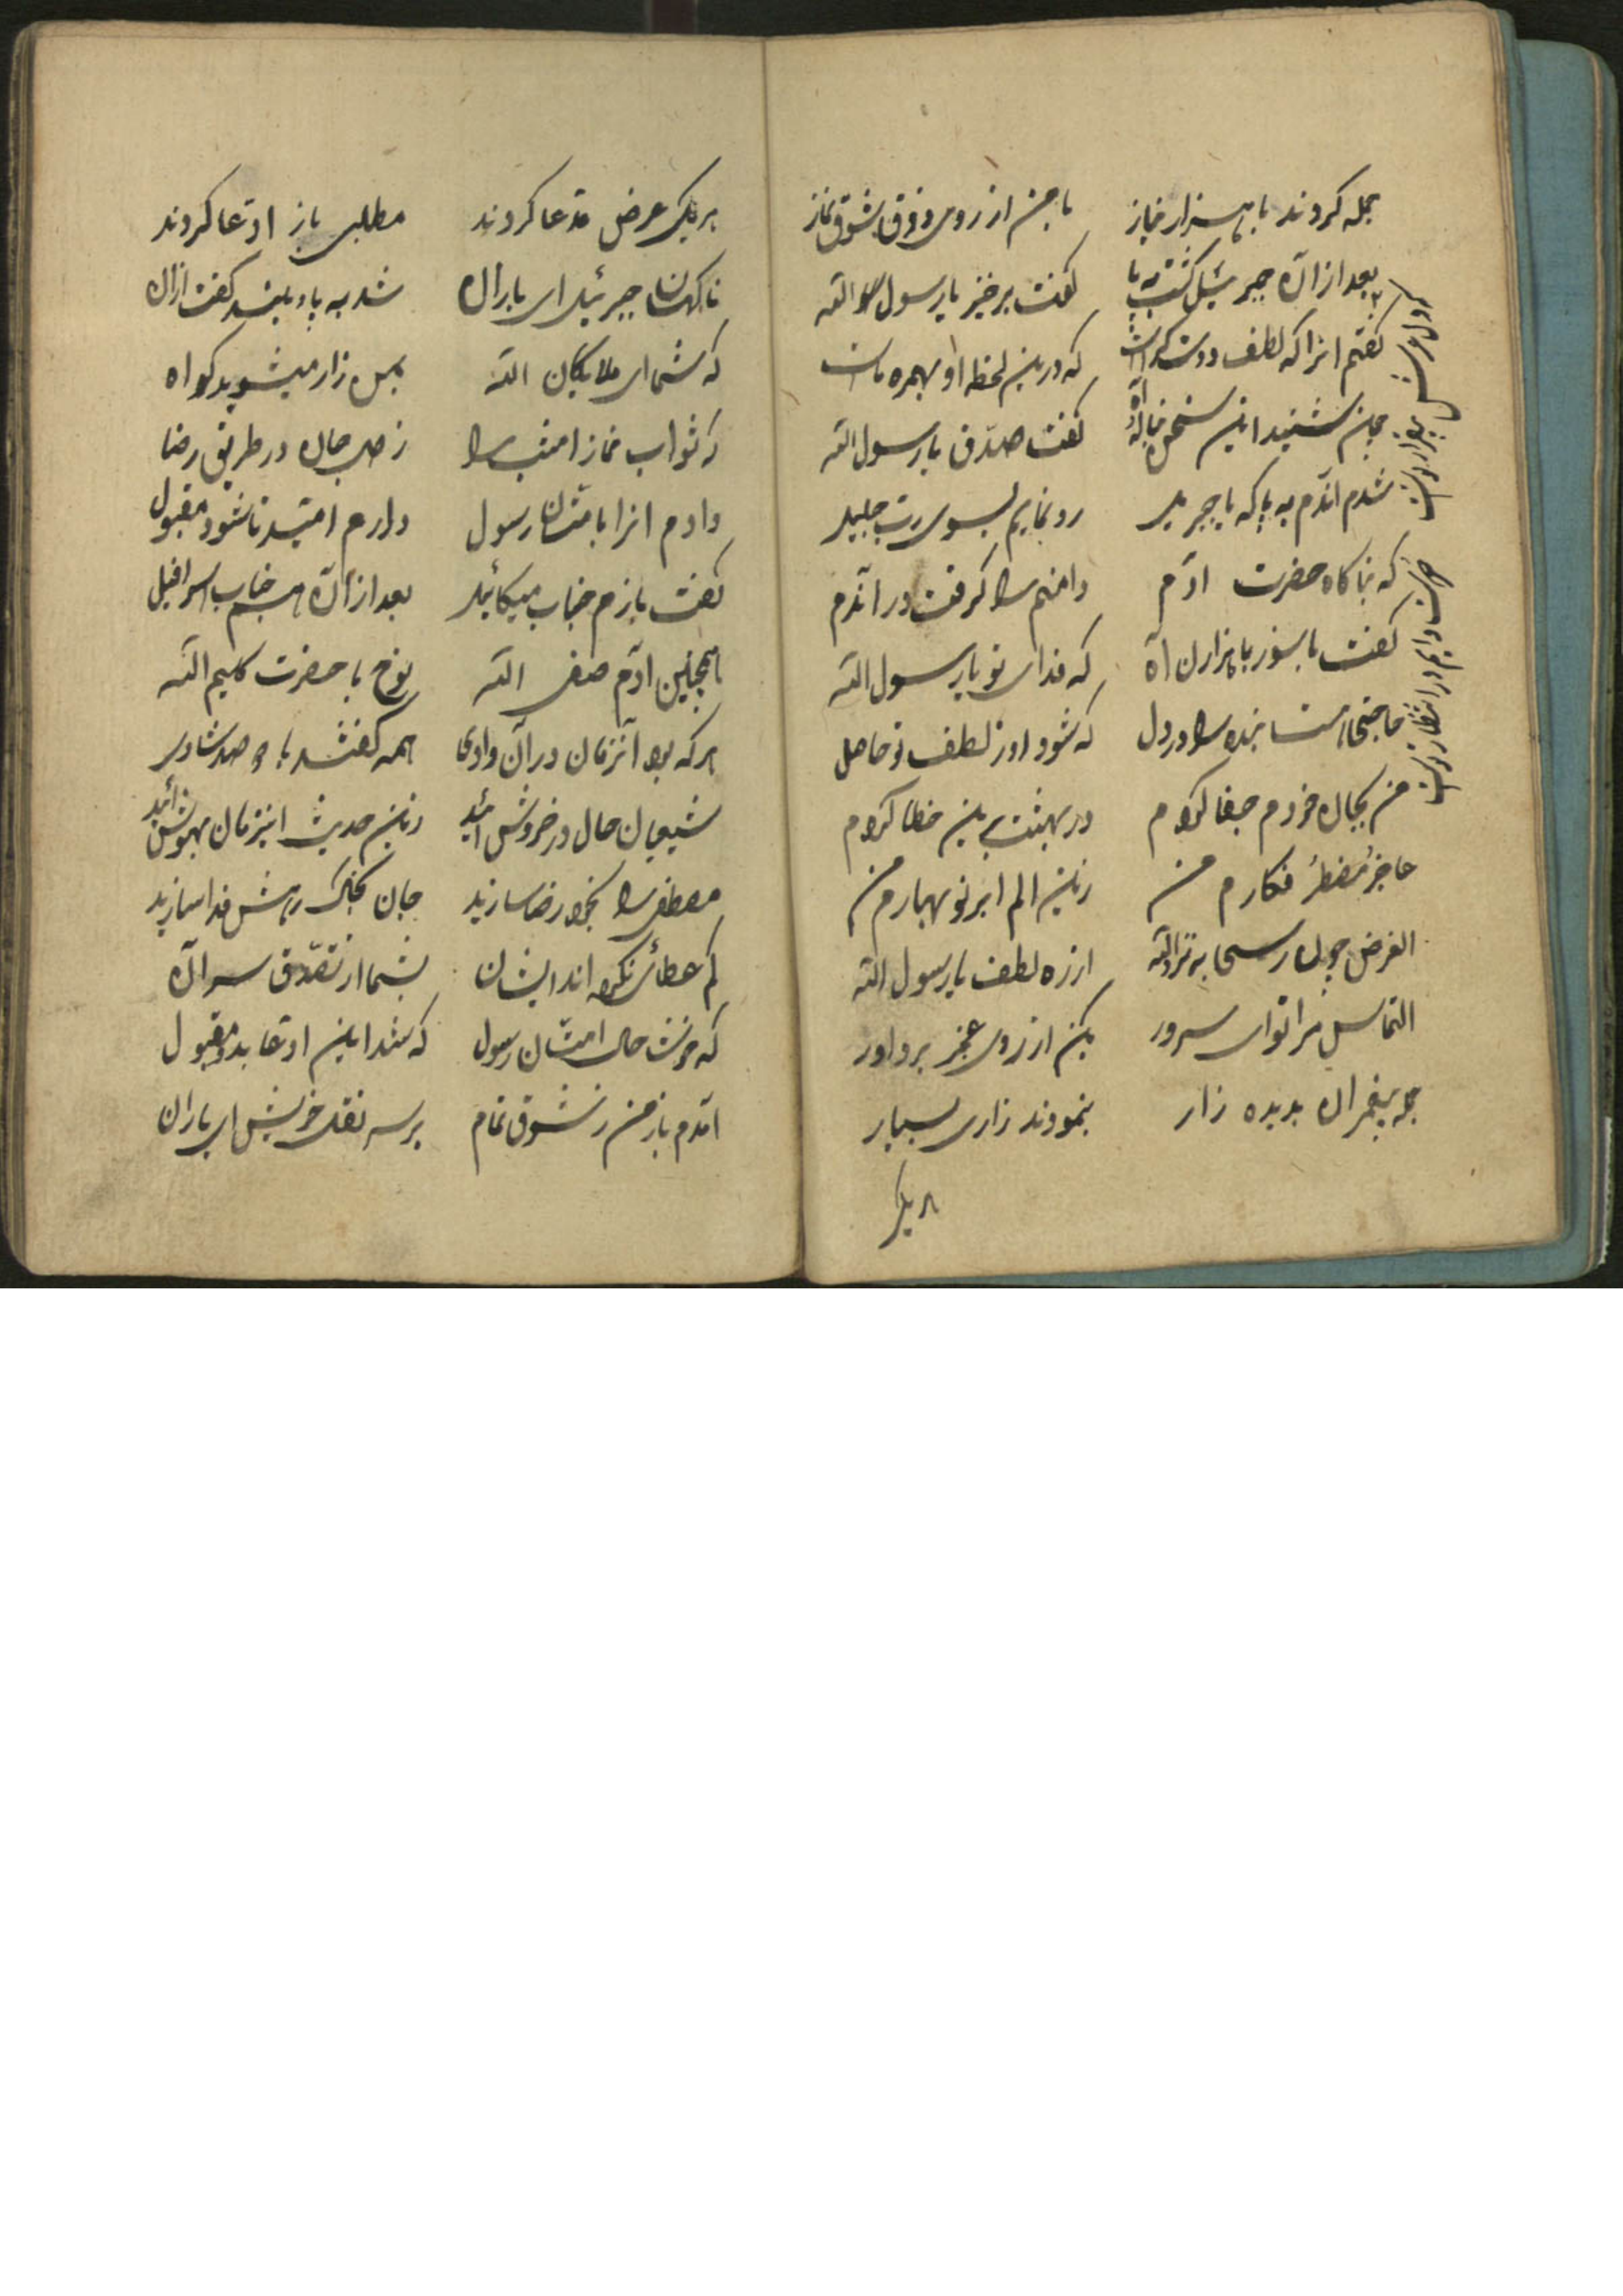 جمله کردند با هزار نیاز با من از روی ذوق شوق نماز
بعد از آن جبرئیل گشت به پا گفت برخیز یا رسول الله
گفتم انرا که لطف دوست که درین لحظه او بهمره ماست
چون شنید این سخن گفت صدق یا رسول الله
شدم آندم به پا که با جبرئیل رو نمایم بسوی رب جلیل
که بناکاه حضرت آدم دامنم را گرفت در آندم
گفت با سوز با هزاران آه که فدای تو یا رسول الله
حاجتی هست بنده را در دل که شود او ز لطف تو حاصل
من بیجان خودم جفا کردم در بهشت برین خطا کردم
عاجز مضطر فکارم من زین الم ابر نو بهارم من
الغرض چون از ره لطف یا رسول الله
التماس مرا تو ای سرور بکن از روی عجز بر داور
جمله پیغمبران بدیده زار بنمودند زاری بسیار
هر یک
دایم در انتظار
هر یک عرض مدعا کردند مطلبی باز ادعا کردند
ناکهان جبرئیل ای یاران شد به پا و بلند گفت از آن
که شما ای ملایکان الله بمن زار میشوید کواه
که ثواب نماز امشب را ز صل جان در طریق رضا
دادم انرا بامتان رسول دارم امید تا شود مقبول
گفت بازم جناب میکائیل بعد از آن هم جناب اسرافیل
همچنین آدم صفی الله نوح با حضرت کلیم الله
هر که بود آنزمان در آن وادی همه گفتند با دو صد شادی
شیعیان حال در خروش آئید زین حدیث اینزمان بهوش آئید
مصطفی را بخود رضا سازید جان بخاک رهش فدا سازید
کم عطائی نکرده اند ایشان بشما از تصدق سر آن
که خوشت حال امتان رسول که شد این ادعا بدو مقبول
آمدم باز من ز شوق تمام بر سر نقل خویش ای یاران